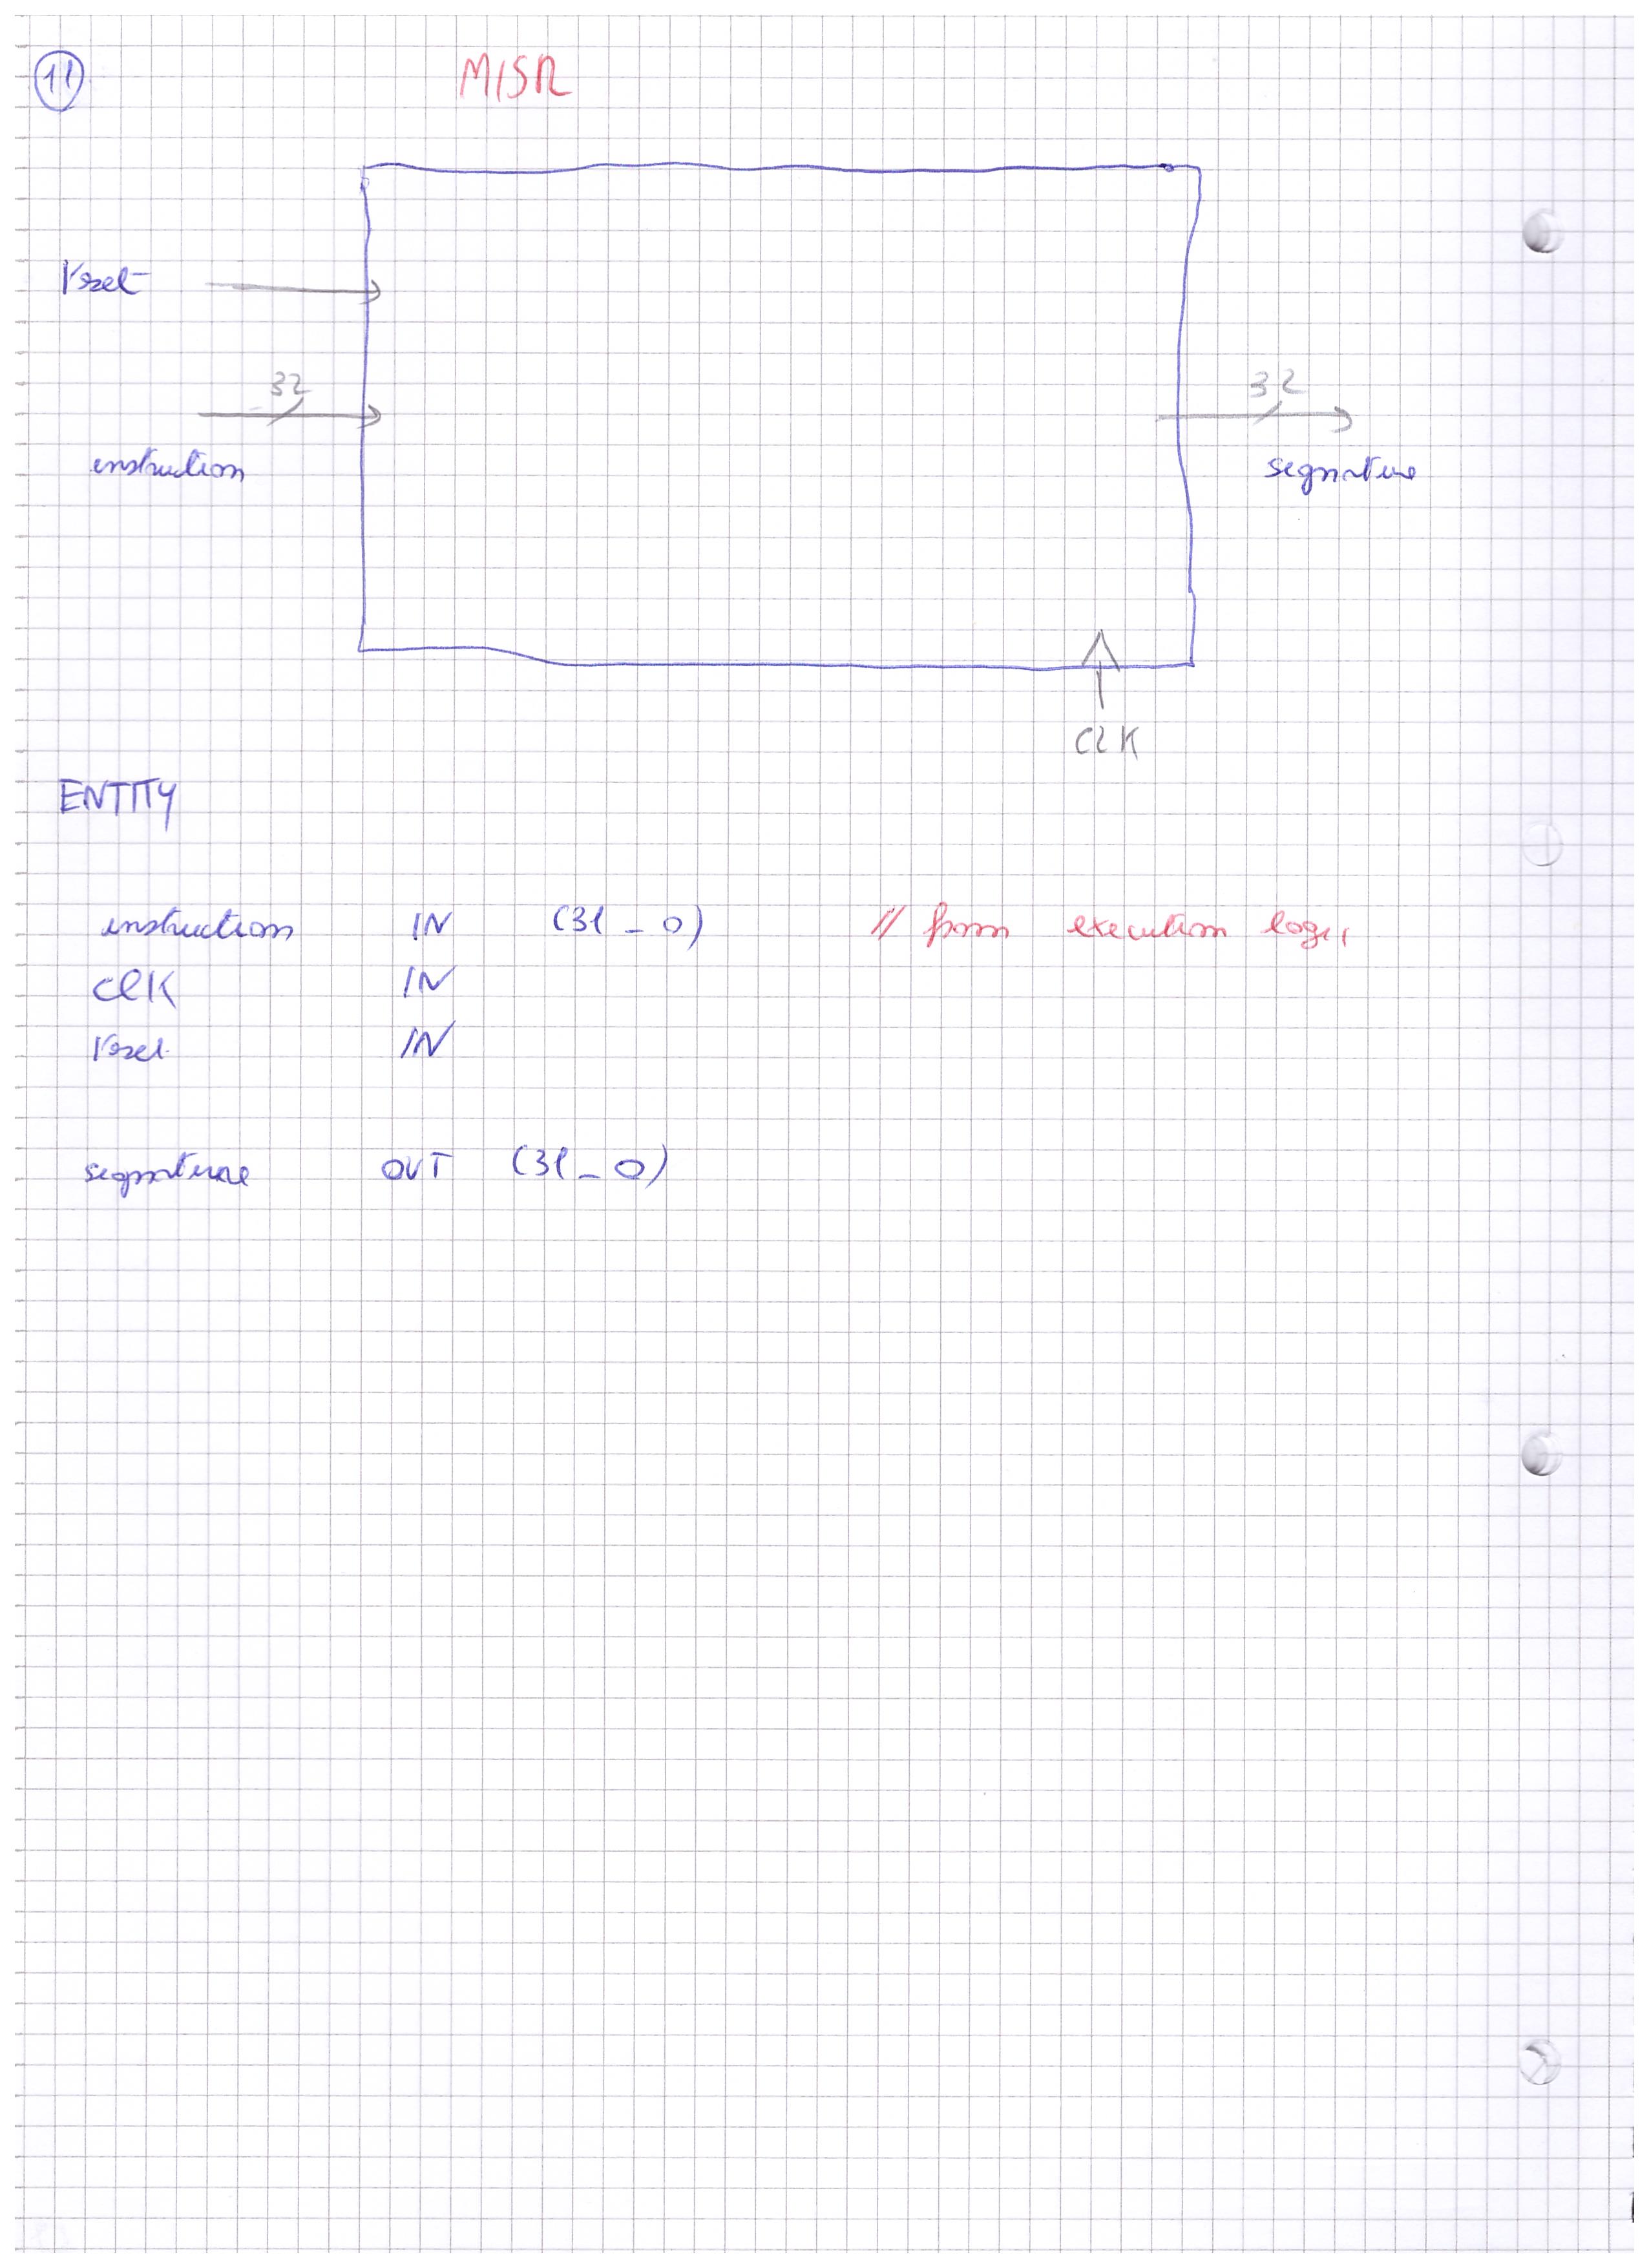 11
MISR
reset
32
32
instruction
signature
CLK
ENTITY
instruction IN (31 - 0) // from execution logic
CLK IN
reset IN
signature OUT (31 - 0)